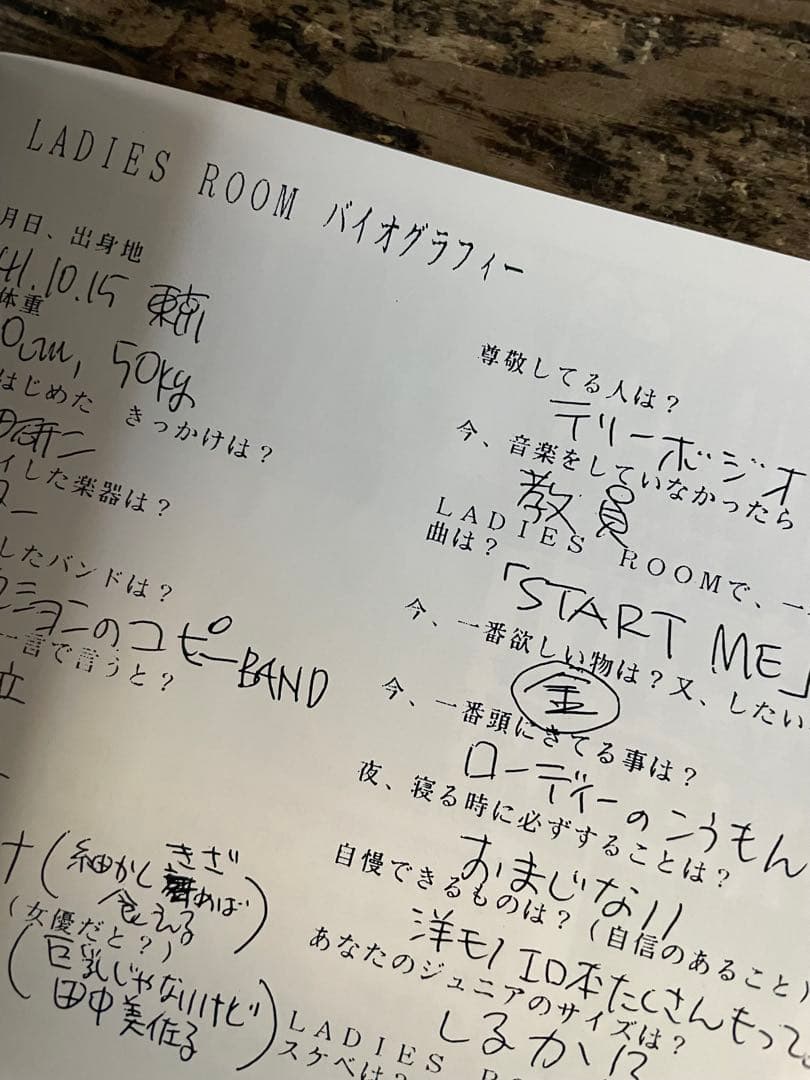 LADIES ROOM バイオグラフィー
月日、出身地
41.10.15 東京
体重
0cm, 50kg
はじめた きっかけは?
研二
ィした楽器は?
ター
したバンドは?
ションのコピーBAND
一言で言うと?
立
ナ(細かくきざめば食える)
(女優だと?)
(巨乳じゃないけど
田中美佐子)
尊敬してる人は?
テリーボジオ
今、音楽をしていなかったら
教員
LADIES ROOMで、一
曲は?
「START ME」
今、一番欲しい物は?又、したい
金
今、一番頭にきてる事は?
ローディーのこうもん
夜、寝る時に必ずすることは?
おまじない
自慢できるものは?(自信のあること)
洋モノエロ本たくさんもって
あなたのジュニアのサイズは?
しるか!?
LADIES RO
スケベは?